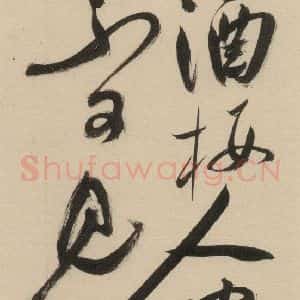 酒 人
不可見
Shufawang.CN